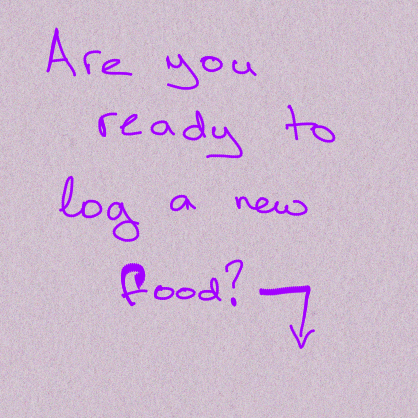 Are you
ready to
log a new
food?